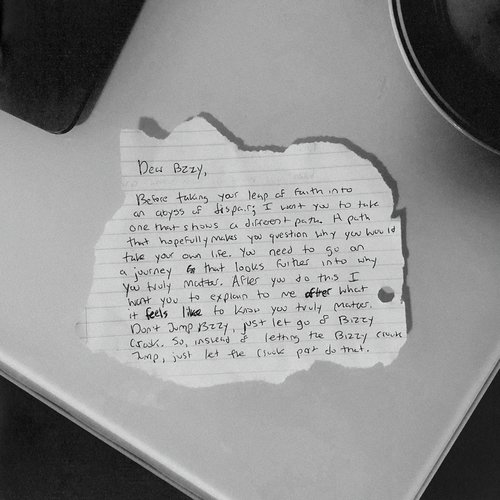 Dear Bzzy,
Before taking your leap of faith into
an abyss of dispair; I want you to take
one that shows a different path. A path
that hopefully makes you question why you would
take your own life. You need to go on
a journey that looks further into why
you truly matter. After you do this I
want you to explain to me after what
it feels like to know you truly matter.
Don't Jump Bzzy, just let go of Bizzy
Crook. So, instead of letting the Bizzy Crook
Jump, just let the Crook part do that.